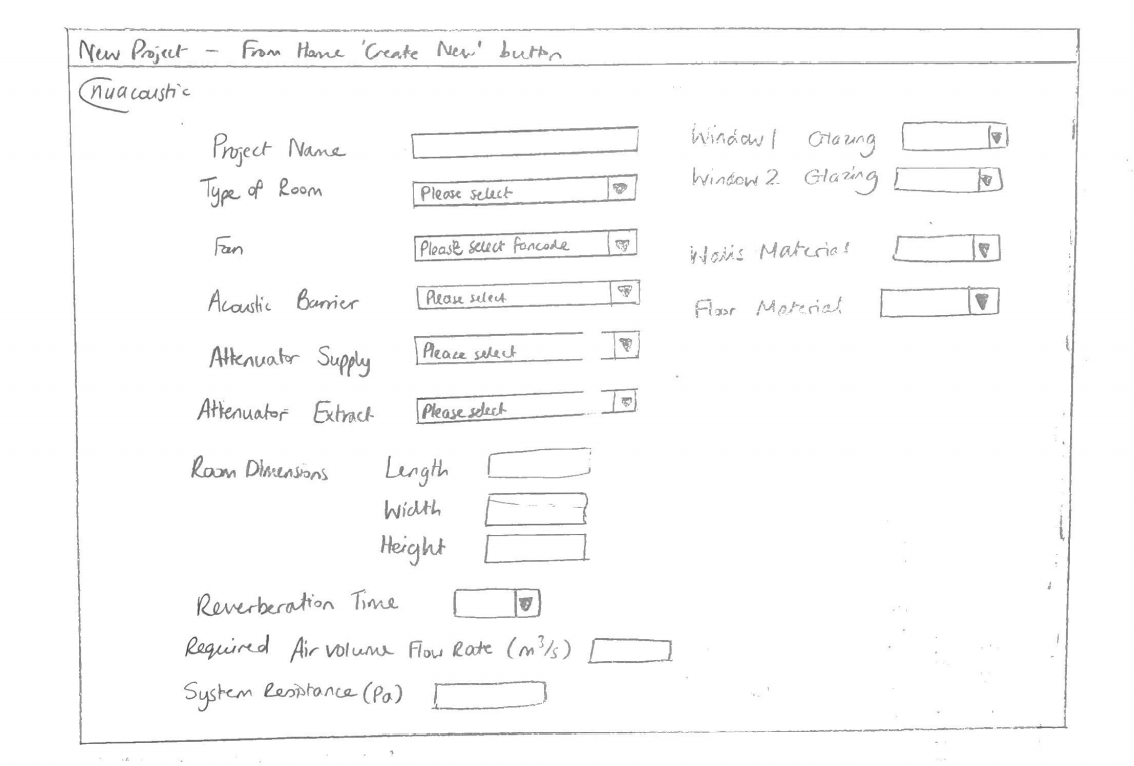 New Project - From Home 'Create New' button
nuacoustic
Project Name
Type of Room Please select
Fan Please select fancode
Acoustic Barrier Please select
Attenuator Supply Please select
Attenuator Extract Please select
Room Dimensions Length
Width
Height
Reverberation Time
Required Air volume Flow Rate (m³/s)
System Resistance (Pa)
Window 1 Glazing
Window 2 Glazing
Walls Material
Floor Material